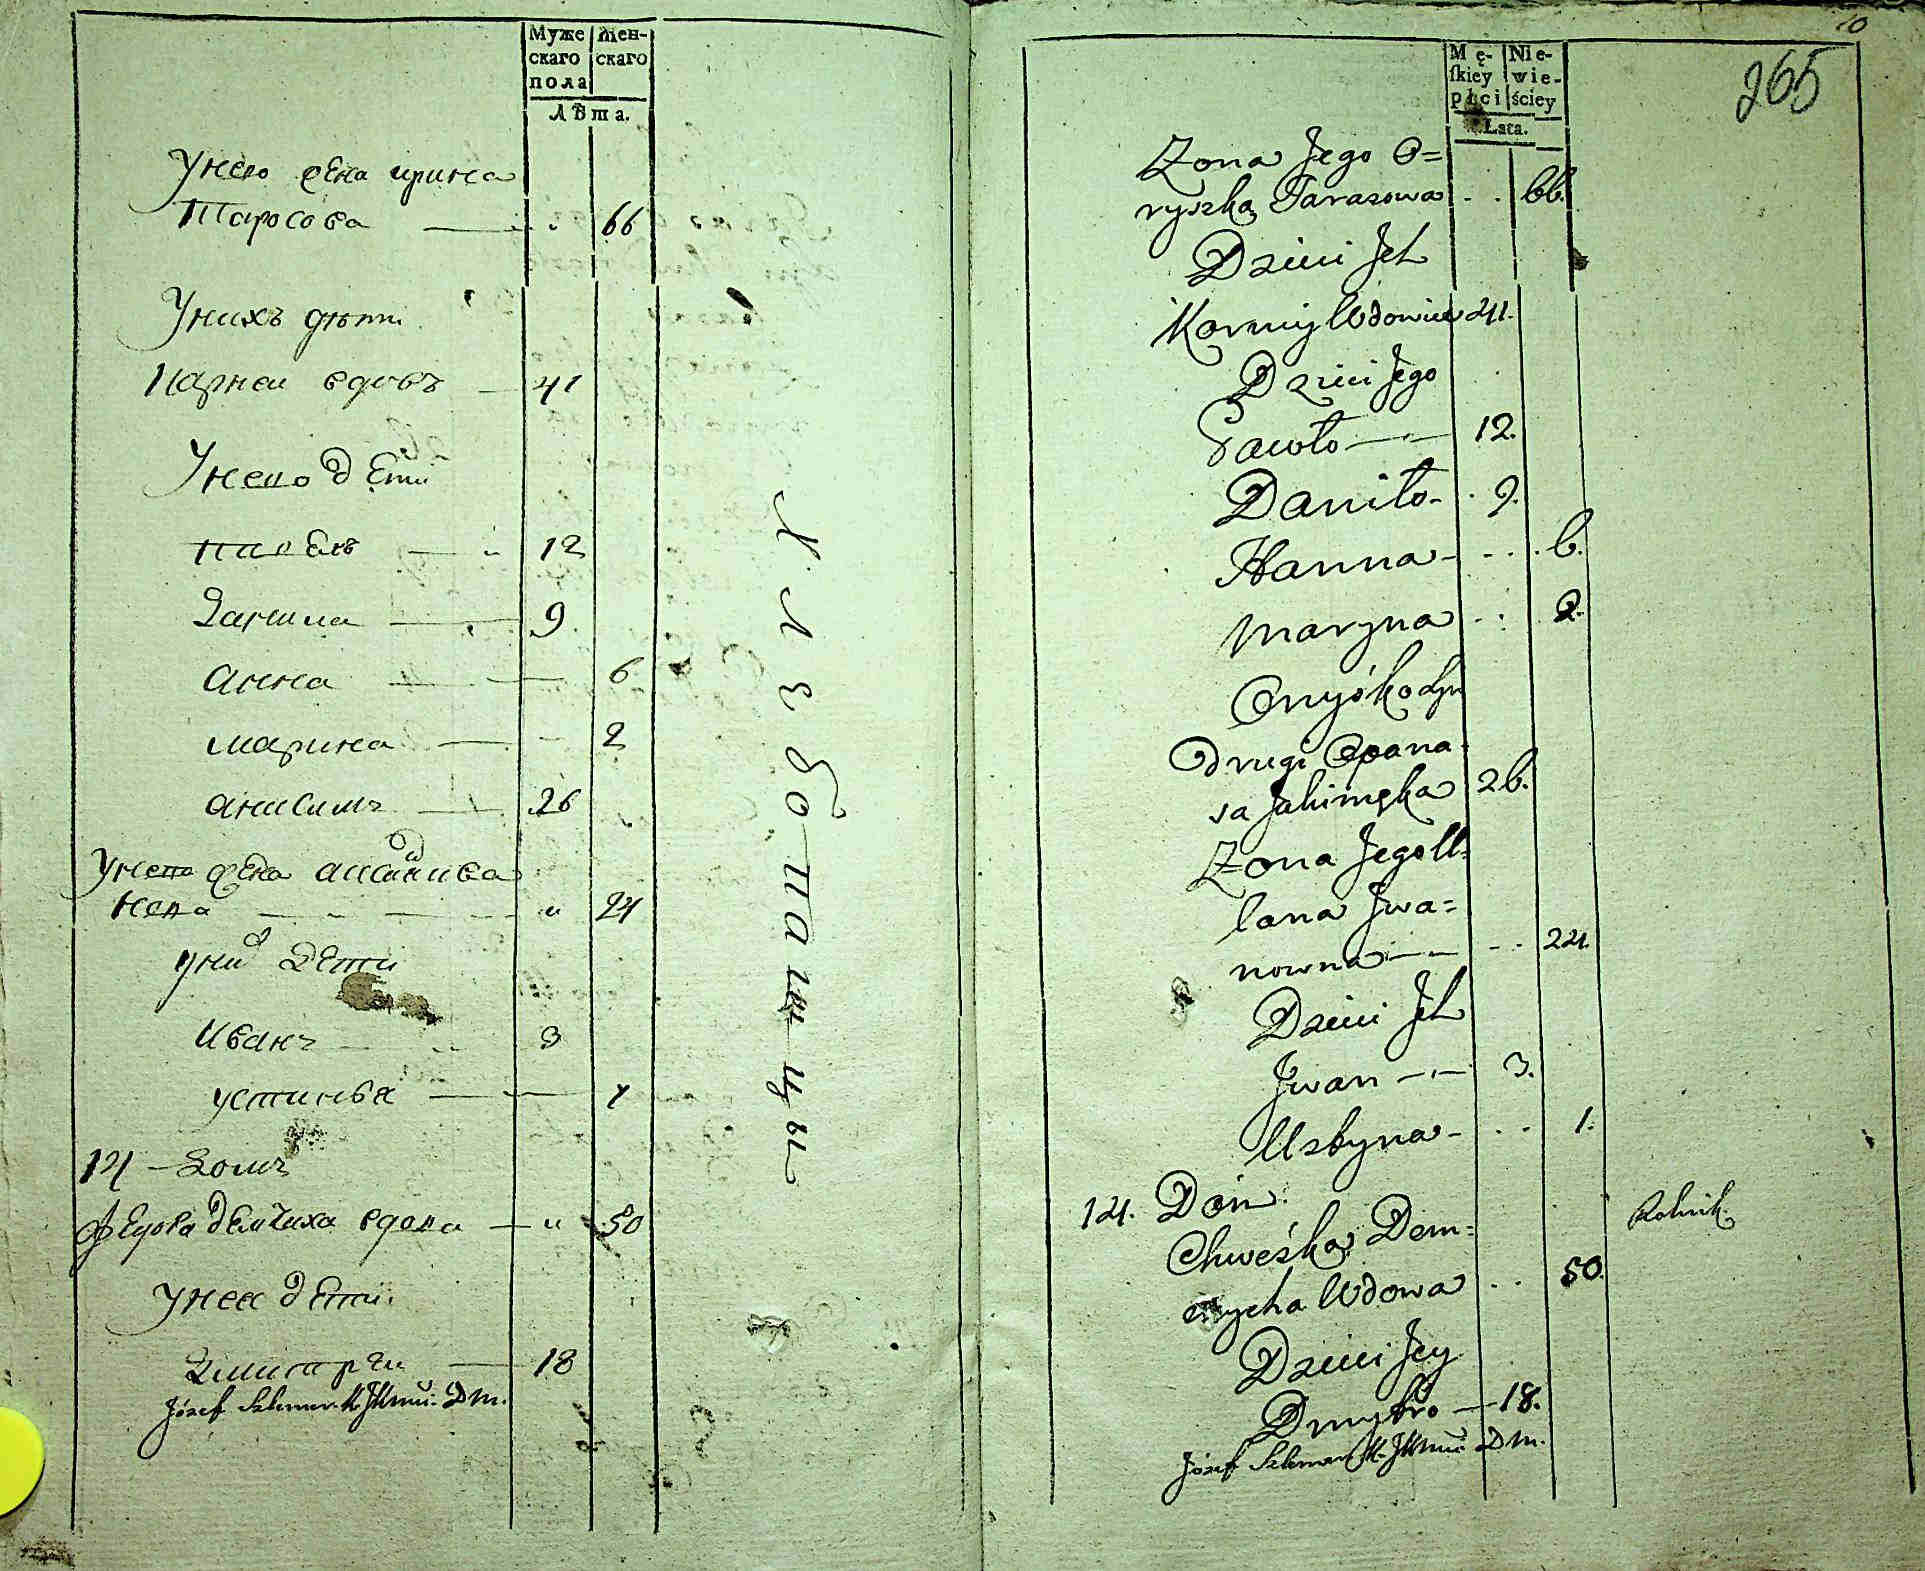 Муже
скаго
пола
Жен-
скаго
Лѣта.
У него жена ирина
Тарасова — " 66
У нихъ дѣти
Карней вдовъ — 41
У него дѣти
павелъ — " 12
Данила — 9
анна — 6
марина — 2
анисимъ — 26
У него жена
нова — " 24
у них дети
Иванъ — 3
устинья — 1
14 — Домъ
Федора демчиха вдова — " 50
У нея дети
Дмитрій — 18
Józef
Хлебопашцы
10
265
Mę-
ſkiey
płci
Nie-
wie-
ściey
Lata.
Zona Jego O=
ryszka Tarasowa . . 66.
Dzieci Jch
Korniy Wdowiec 41.
Dzieci Jego
Pawło — 12.
Daniło - . 9.
Hanna - . . . 6.
Maryna . . 2.
Onyśko Syn
drugi Opana-
sa Jakimęka 26.
Zona Jego Ul=
lana Jwa=
nowna — . . 24.
Dzieci Jch
Jwan — 3.
Ustyna - . . 1.
14. Dom.
Rolnik.
Chweśka Dem=
czycha Wdowa . . 50.
Dzieci Jey
Dmytro — 18.
Józef